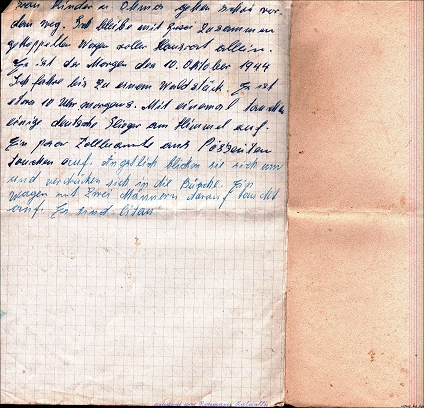 von Kinder u. Ohmor gehen schon vor
dem weg. Ich bleibe mit zwei zusammen
gekoppelten Wagen voller Hausrat allein.
Es ist der Morgen des 10. Oktober 1944
Ich fahre bis zu einem Waldstück. Es ist
etwa 10 Uhr morgens. Mit einemal tauchen
einige deutsche Flieger am Himmel auf.
Ein paar Zollbeamte aus Pösseiten
tauchen auf. Ängstlich blicken sie sich um
und verdrücken sich in die Büsche. Ein
Wagen mit zwei Männern darauf taucht
auf. Es sind